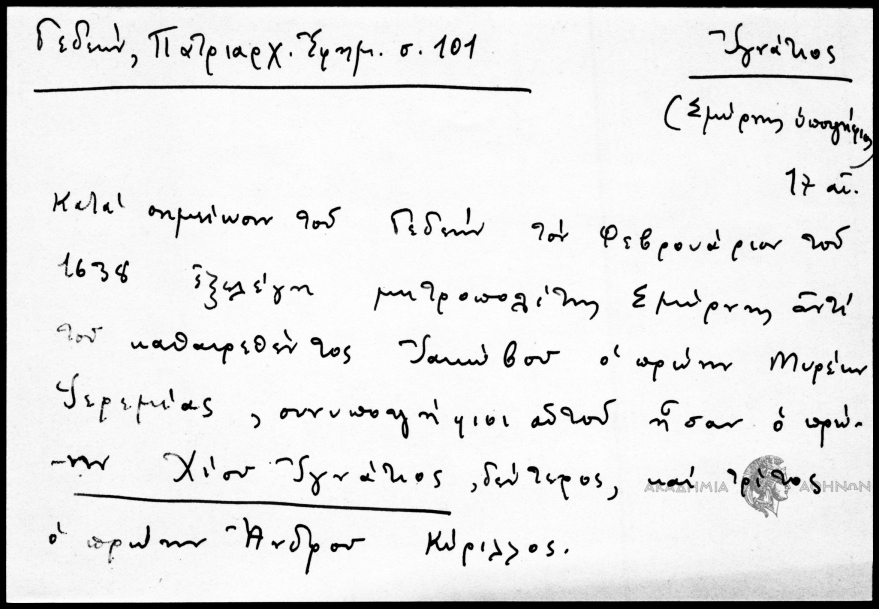 Γεδεών, Πατριαρχ. Ἐφημ. σ. 101
Ἰγνάτιος
(Σμύρνης ὑποψήφιος)
17 αἰ.
Κατά σημείωσιν τοῦ Γεδεών τόν Φεβρουάριον τοῦ
1638 ἐξελέγη μητροπολίτης Σμύρνης ἀντί
τοῦ καθαιρεθέντος Ἰακώβου ὁ πρώην Μυρέων
Ἱερεμίας, συνυποψήφιοι αὐτοῦ ἦσαν ὁ πρώ-
-ην Χίου Ἰγνάτιος, δεύτερος, καί τρίτος
ὁ πρώην Ἄνδρου Κύριλλος.
ΑΚΑΔΗΜΙΑ ΑΘΗΝΩΝ